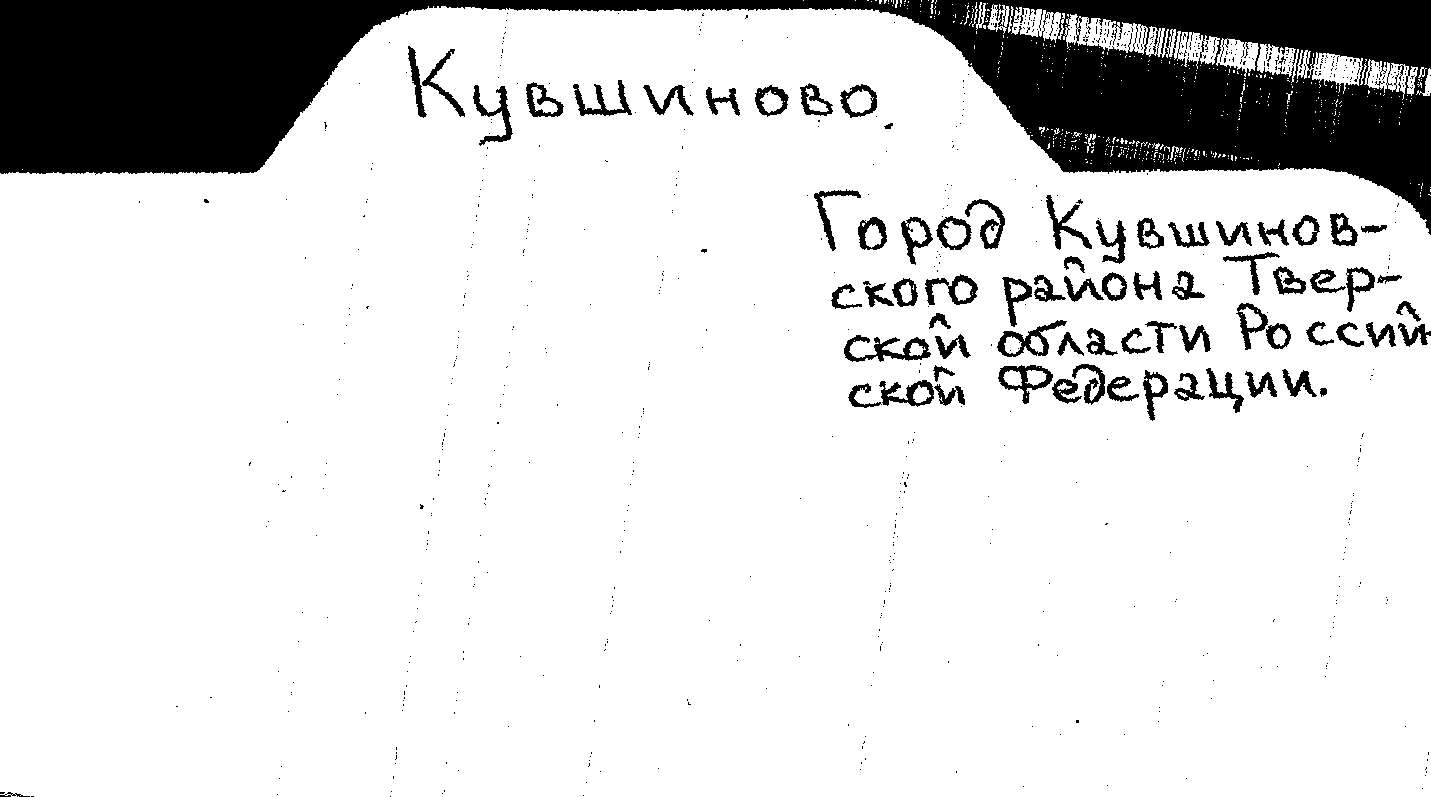 Кувшиново.
Город Кувшинов-
ского района Твер-
ской области Россий-
ской Федерации.